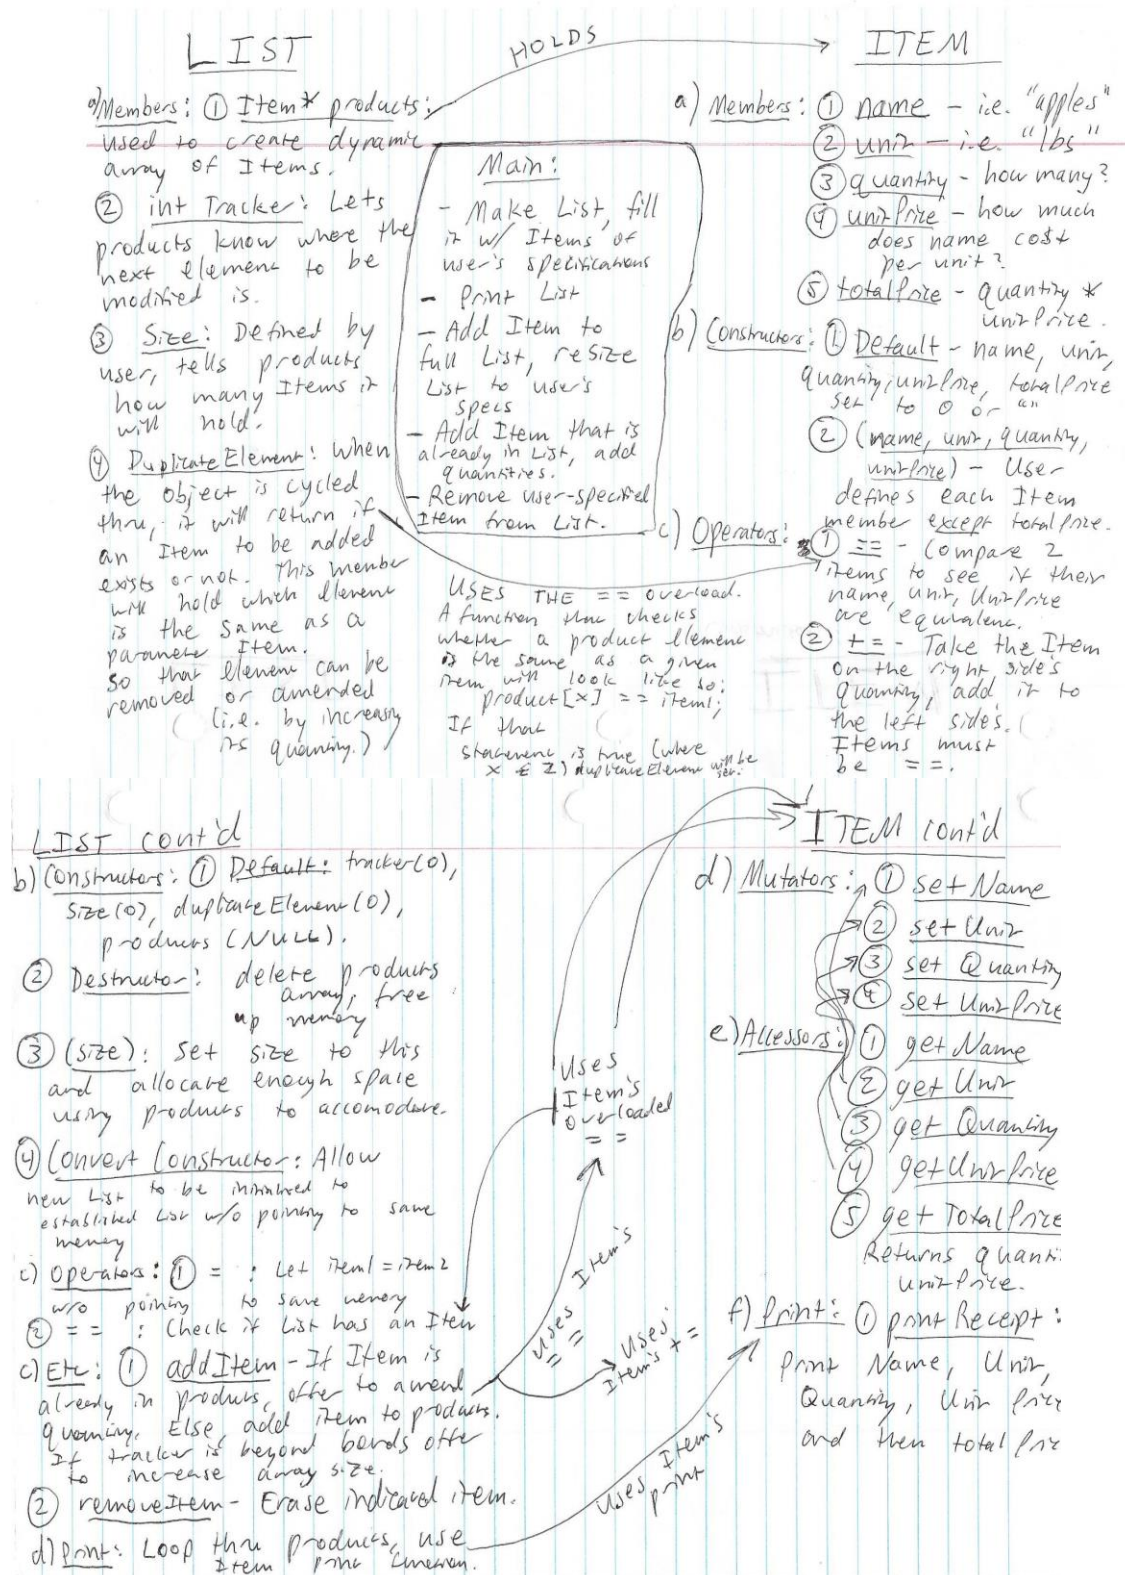 LIST
a) Members: ① Item* products:
used to create dynamic
array of Items.
② int Tracker: Lets
products know where the
next element to be
modified is.
③ Size: Defined by
user, tells products
how many Items it
will hold.
④ Duplicate Element: When
the object is cycled
thru, it will return if
an Item to be added
exists or not. This member
will hold which element
is the same as a
parameter Item.
So that element can be
removed or amended
(i.e. by increasing
its quantity.)
HOLDS
Main:
- Make List, fill
it w/ Items of
user's specifications
- Print List
- Add Item to
full List, resize
List to user's
specs
- Add Item that is
already in List, add
quantities.
- Remove user-specified
Item from List.
USES THE == overload.
A function that checks
whether a product element
is the same as a given
item will look like so:
product[x] == item1;
If that
statement is true (where
x ∈ Z) duplicateElement will be
set.
ITEM
a) Members: ① name - i.e. "apples"
② unit - i.e. "lbs"
③ quantity - how many?
④ unitPrice - how much
does name cost
per unit?
⑤ totalPrice - quantity *
unitPrice.
b) Constructors: ① Default - name, unit,
quantity, unitPrice, totalPrice
set to 0 or ""
② (name, unit, quantity,
unitPrice) - User
defines each Item
member except totalPrice.
c) Operators: ① == - Compare 2
items to see if their
name, unit, UnitPrice
are equivalent.
② += - Take the Item
on the right side's
quantity, add it to
the left side's.
Items must
be ==.
LIST cont'd
b) Constructors: ① Default: tracker(0),
size(0), duplicateElement(0),
products(NULL).
② Destructor: delete products
array, free
up memory
③ (size): Set size to this
and allocate enough space
using products to accomodate.
④ Convert Constructor: Allow
new List to be initialized to
established List w/o pointing to same
memory
c) Operators: ① = : Let item1 = item2
w/o pointing to same memory
② == : Check if List has an Item
c) Etc: ① addItem - If Item is
already in products, offer to amend
quantity. Else, add item to products.
If tracker is beyond bounds offer
to increase array size.
② removeItem - Erase indicated item.
d) Print: Loop thru products, use
Item print function.
Uses
Item's
overloaded
==
Uses Item's
==
Uses
Item's +=
Uses Item's
print
ITEM cont'd
d) Mutators: ① set Name
② set Unit
③ set Quantity
④ set UnitPrice
e) Accessors: ① get Name
② get Unit
③ get Quantity
④ getUnitPrice
⑤ get TotalPrice
Returns quanti
unitPrice.
f) Print: ① print Receipt:
Print Name, Unit,
Quantity, Unit Price
and then total Pric